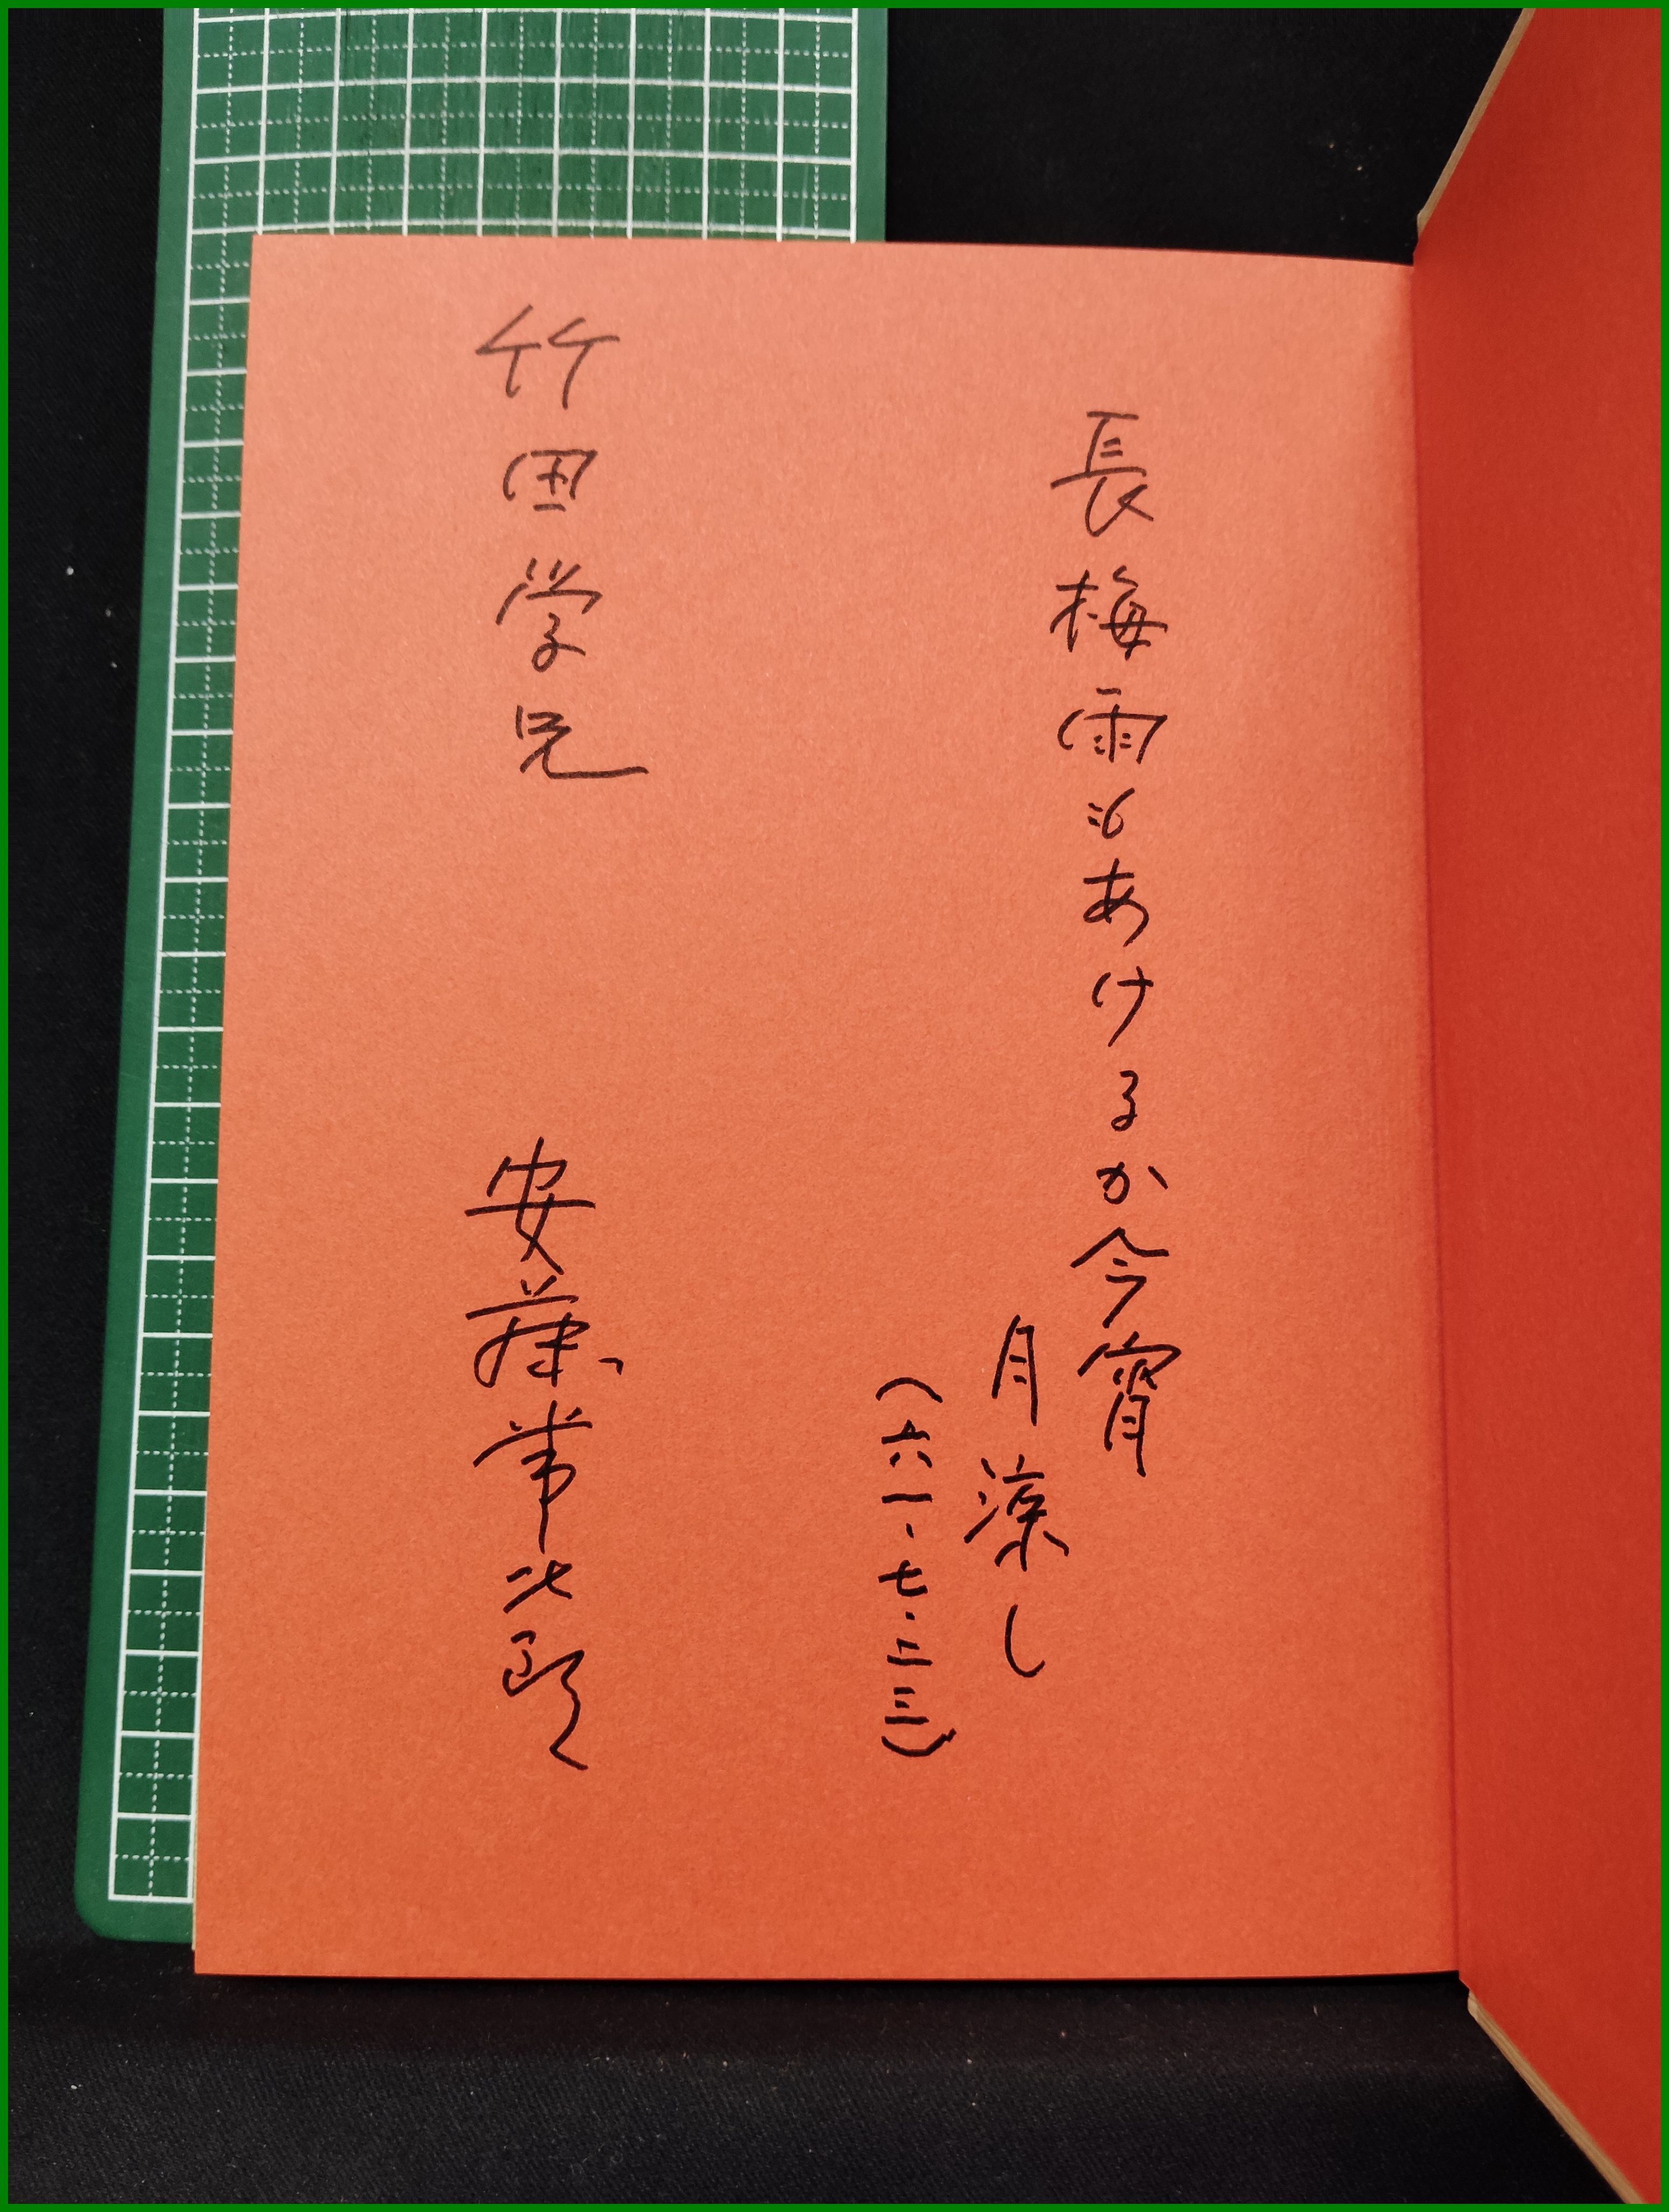 長梅雨もあけるか今宵
月涼し
(六一・七・二三)
竹田学兄
安藤常次郎